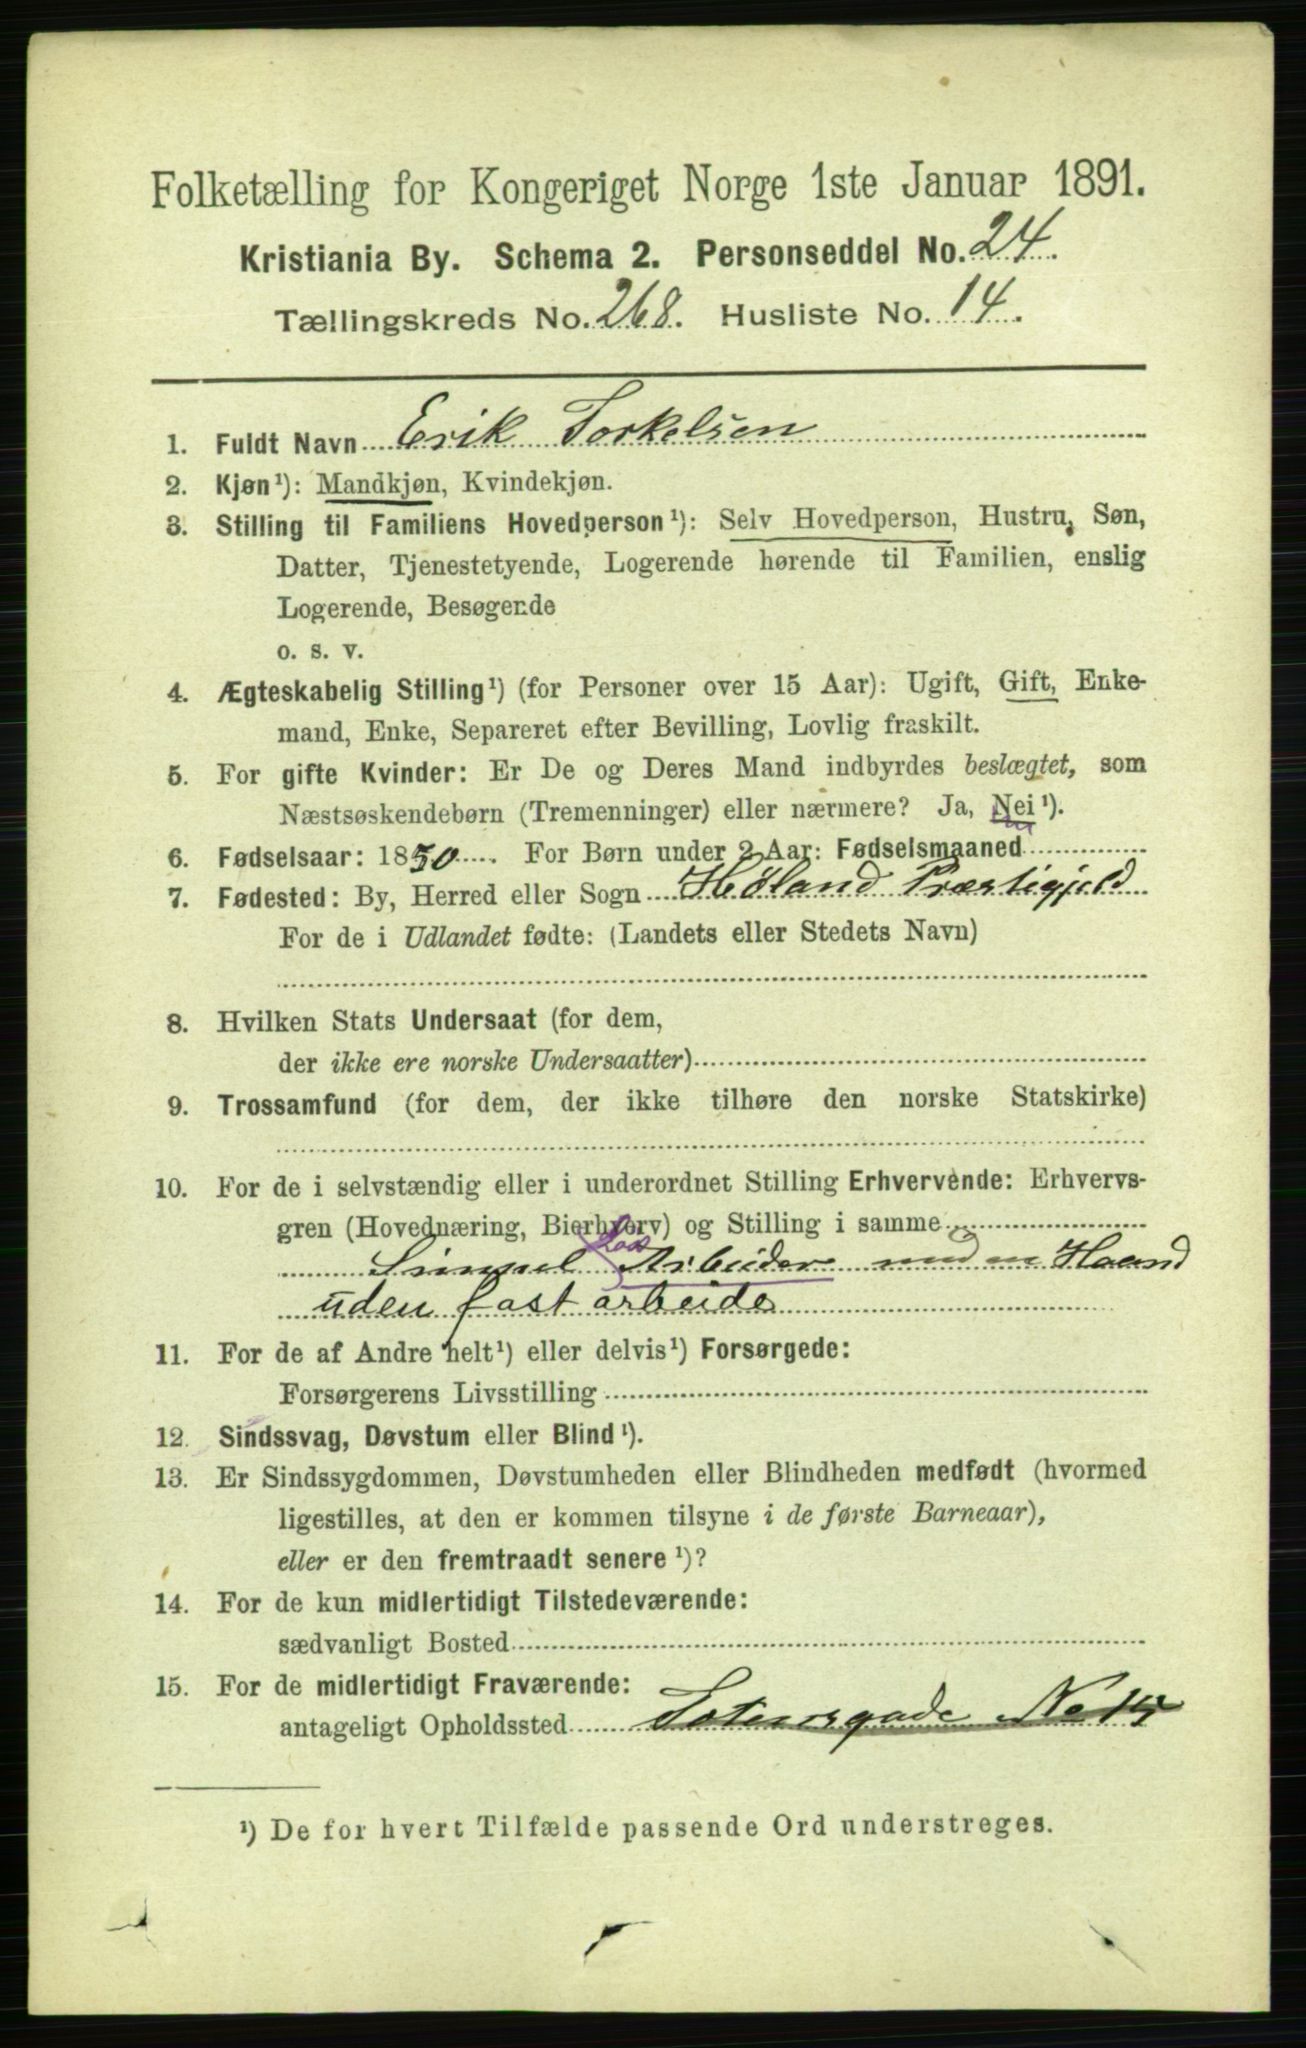 Folketælling for Kongeriget Norge 1ste Januar 1891.
Kristiania By. Schema 2. Personseddel No. 24.
Tællingskreds No. 268. Husliste No. 14.
1. Fuldt Navn Erik Torkelsen
2. Kjøn¹): Mandkjøn, Kvindekjøn.
3. Stilling til Familiens Hovedperson¹): Selv Hovedperson, Hustru, Søn,
Datter, Tjenestetyende, Logerende hørende til Familien, enslig
Logerende, Besøgende
o. s. v.
4. Ægteskabelig Stilling¹) (for Personer over 15 Aar): Ugift, Gift, Enke-
mand, Enke, Separeret efter Bevilling, Lovlig fraskilt.
5. For gifte Kvinder: Er De og Deres Mand indbyrdes beslægtet, som
Næstsøskendebørn (Tremenninger) eller nærmere? Ja, Nei¹).
6. Fødselsaar: 1850. For Børn under 2 Aar: Fødselsmaaned
7. Fødested: By, Herred eller Sogn Høland Præstigjeld
For de i Udlandet fødte: (Landets eller Stedets Navn)
8. Hvilken Stats Undersaat (for dem,
der ikke ere norske Undersaatter)
9. Trossamfund (for dem, der ikke tilhøre den norske Statskirke)
10. For de i selvstændig eller i underordnet Stilling Erhvervende: Erhvervs-
gren (Hovednæring, Bierhverv) og Stilling i samme
Løs
Simpel Arbeider med en Haand
uden fast arbeide
11. For de af Andre helt¹) eller delvis¹) Forsørgede:
Forsørgerens Livsstilling
12. Sindssvag, Døvstum eller Blind¹).
13. Er Sindssygdommen, Døvstumheden eller Blindheden medfødt (hvormed
ligestilles, at den er kommen tilsyne i de første Barneaar),
eller er den fremtraadt senere¹)?
14. For de kun midlertidigt Tilstedeværende:
sædvanligt Bosted
15. For de midlertidigt Fraværende:
antageligt Opholdssted No
¹) De for hvert Tilfælde passende Ord understreges.